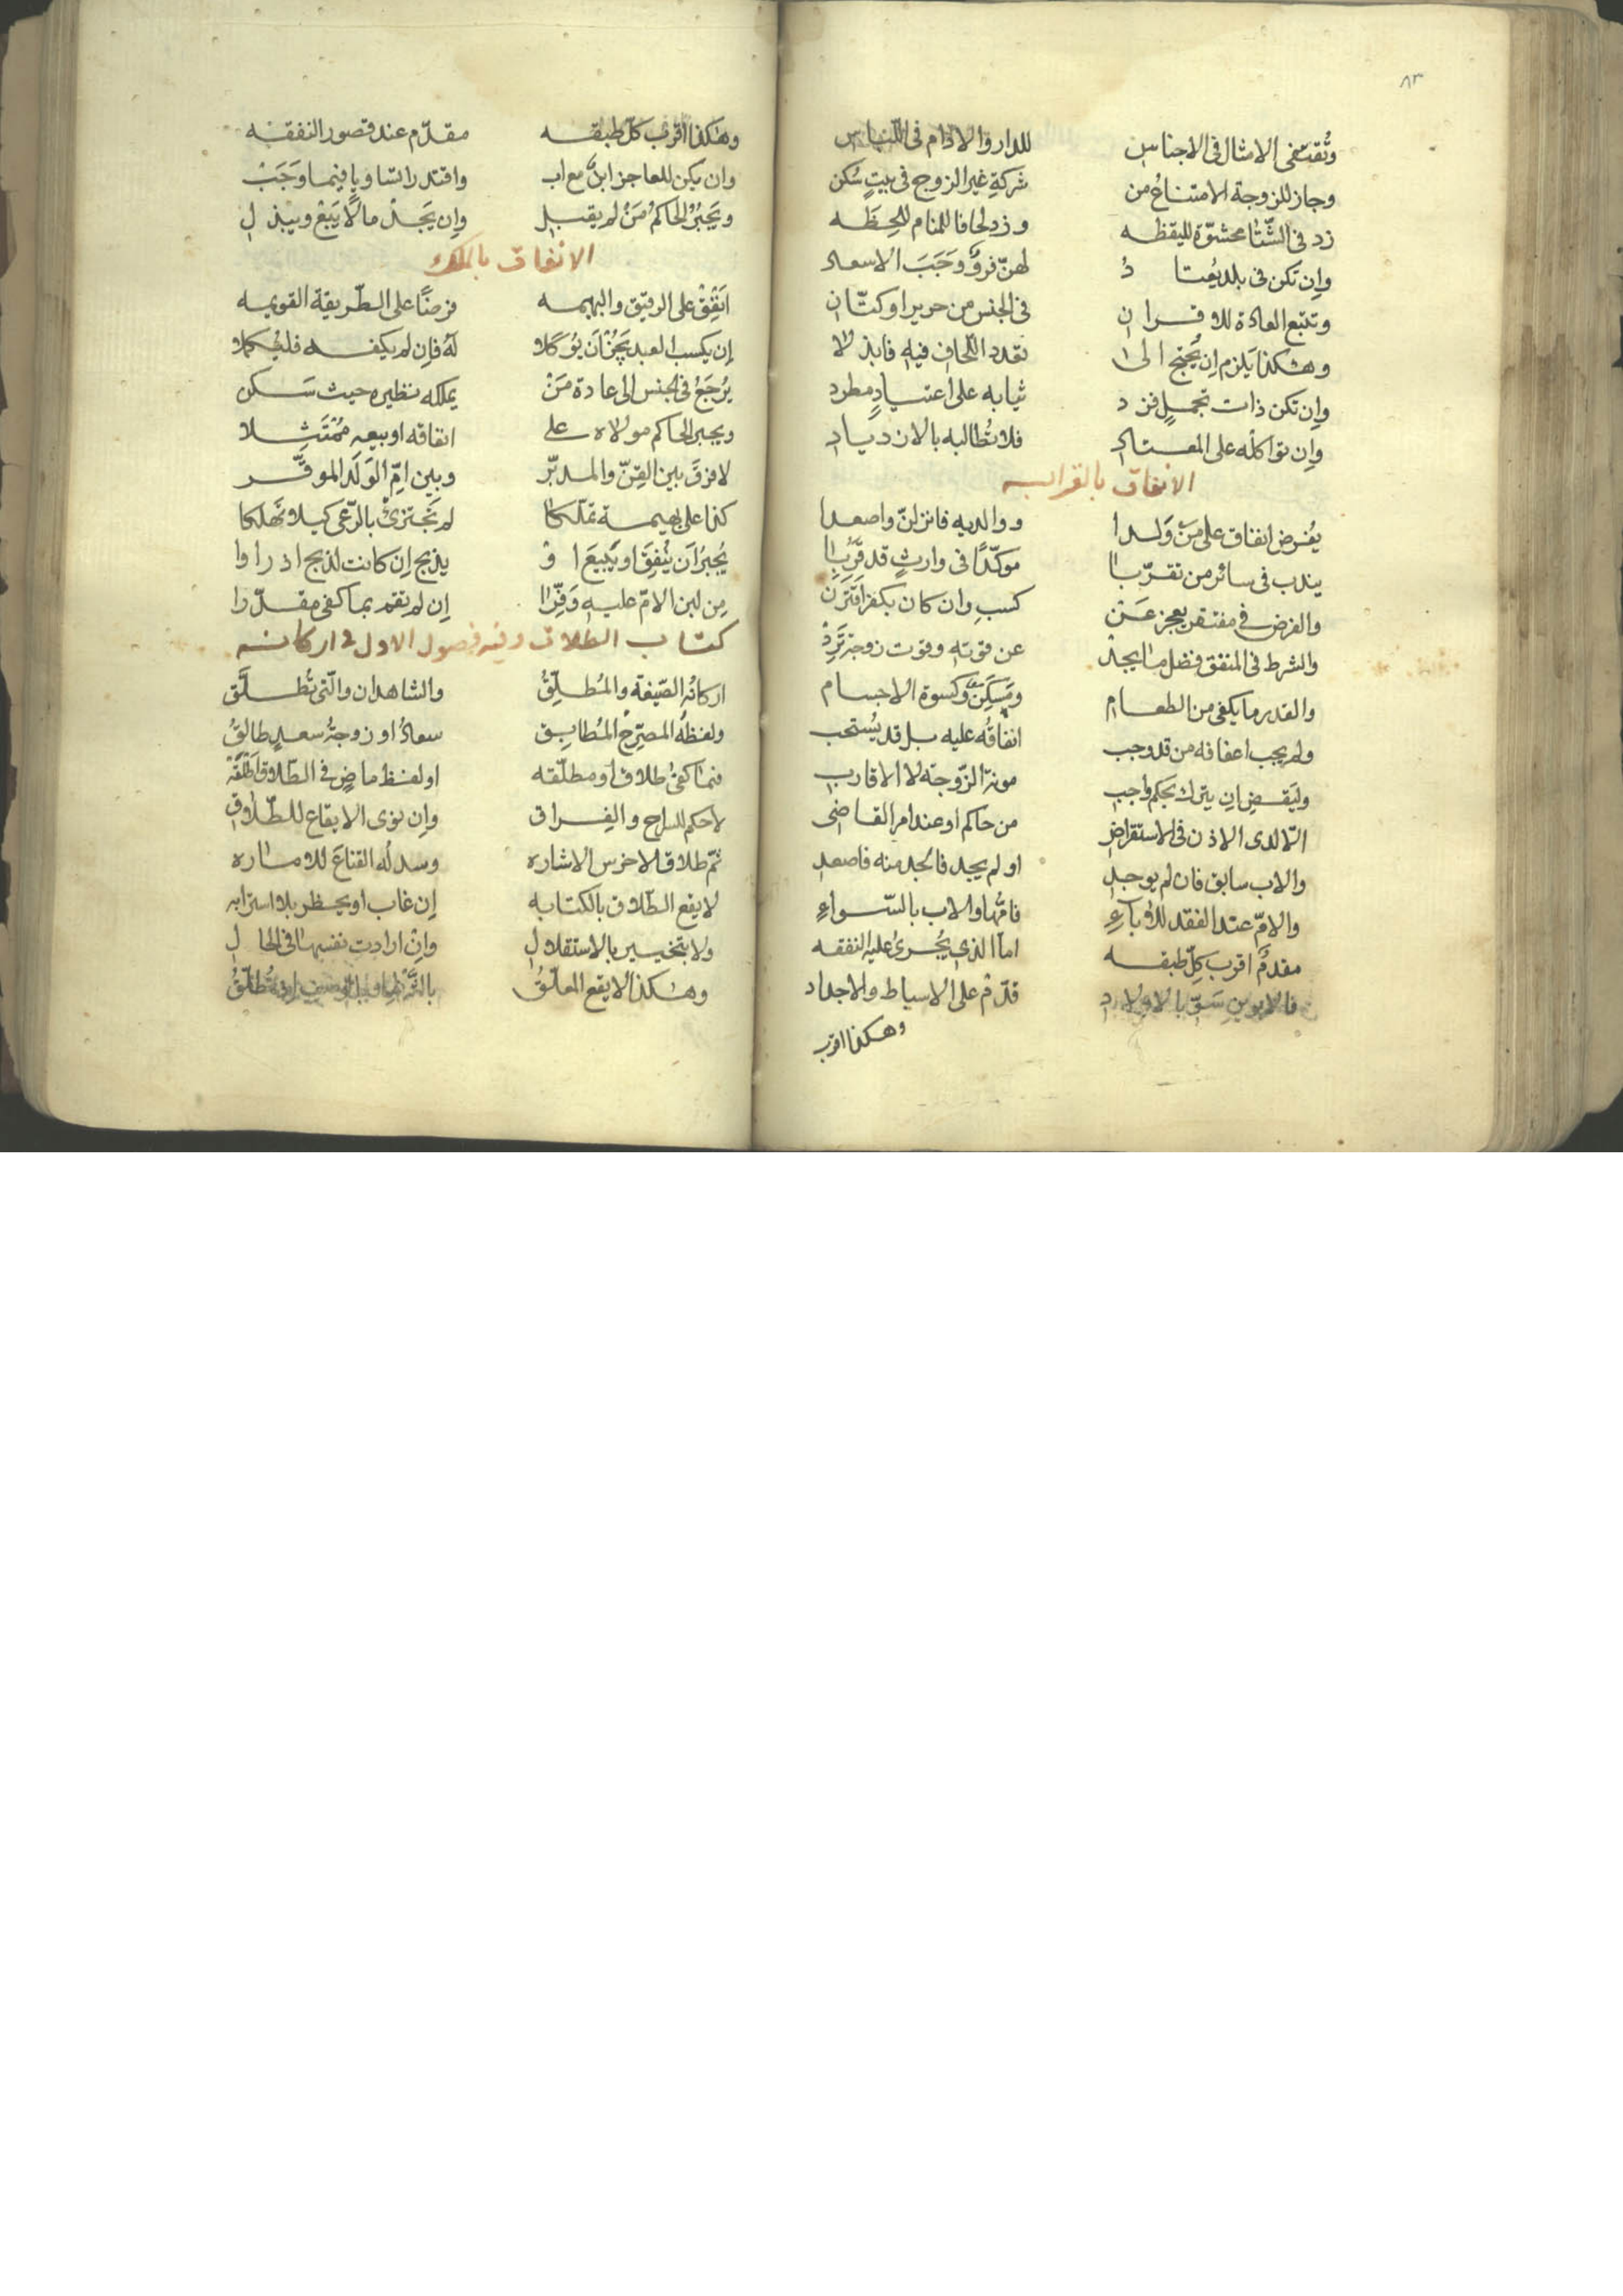 ٨٣
وتُقتفى الامثال فى الاجناس للدار والادام فى اللباس
وجاز للزوجة الامتناعُ من شركةِ غير الزوج فى بيتٍ سُكن
زد فى الشّتا محشوّة لليقظه وزد لحافا للمنام للحِظَه
وإن تكن فى بلد يُعتادُ لهنّ فروٌ وَجَبَ الاسعاد
وتتبع العادة للاقران فى الجنس من حرير او كتّان
وهكذا يَلزم إن يُحتج الى تعدد اللحاف فيه فابذلا
وإن تكن ذات تجملٍ فزد ثيابه على اعتيادٍ مطرد
وإن تواكلْه على المعتاد فلا تُطالبه بالازدياد
الانفاق بالقرابه
يُفرض انفاق على مَنْ وَلدا ووالديه فانزلنّ واصعدا
يندب فى سائر من تقرّبا موكّدًا فى وارثٍ قد قَرُبا
والفرض فى مفتقر يعجز عَنْ كسبٍ وان كان بكفر اقترن
والشرط فى المنفق فضل ما يجدْ عن قوته وقوت زوجة تَرِدْ
والقدر ما يكفى من الطعام ومَسكَنٌ وكسوة الاجسام
ولم يجب اعفافه من قد وجب انفاقُه عليه بل قد يُستحب
وليَقضِ إن يترك بحكم واجب مونة الزّوجة لا الاقارب
الّا لدى الاذن فى الاستقراض من حاكم او عند امر القاضى
والاب سابق فان لم يوجد او لم يجد فالجد منه فاصعد
والامّ عند الفقد للآباءِ فامّها والاب بالسّواءِ
مقدمٌ اقرب كلّ طبقه اما الذى يُجرى عليه النفقه
فالابوين سَوِّ بالاولاد قدّم على الاسباط والاجداد
وهكذا اقرب
وهكذا اقرب كلّ طبقه مقدّم عند قصور النفقه
وان يكن للعاجز ابنٌ مع اب واقتدرا تساويا فيما وَجَبْ
ويَجبُرُ الحاكمُ مَنْ لم يقبل وإن يَجدْ مالًا يَبعْ ويبذل
الانفاق بالملك
اَنفِقْ على الرقيق والبهيمه فرضًا على الطّريقة القويمه
إن يكسب العبد يَجُزْ اَن يُوَكلا لَهُ فإن لم يكفه فليُكملا
يُرجَعُ فى الجنس الى عادة مَنْ يملكه نظيره حيث سَكن
ويجبر الحاكم مولاه على انفاقه او بيعه مُمْتَثِلا
لا فرقَ بين القِنّ والمدبّر وبين امّ الوَلَد الموقّر
كذا على بهيمة تملّكا لم تَجتزئْ بالرّعى كيلا تهلكا
يُجبرُ اَن يُنفِقَ او يَبيعَ اَوْ يذبح إن كانت لذبح اذ راوا
مِن لبن الامّ عليه وَفّرا إن لم يقم بما كفى مقدّرا
كتاب الطلاق وفيه فصول الاول فى اركانه
اركانُه الصّيغة والمُطلِّقُ والشاهدان والّتى تُطلَّق
ولفظهُ المصرّحُ المُطابِق سعادُ او زوجةُ سعدٍ طالقُ
فما كفى طلاق او مطلّقه او لفظ ماضٍ فى الطّلاق اطلقَه
لا حكم للسراح والفِراق وإن نوى الايقاع للطّلاق
ثمّ طلاق الاخرس الاشاره وسدله القناعَ للاماره
لا يقع الطّلاق بالكتابه إن غاب او يحضر بلا استرابه
ولا بتخيير بالاستقلال وإن ارادت نفسها فى الحال
وهكذا لا يقع المعلّقُ